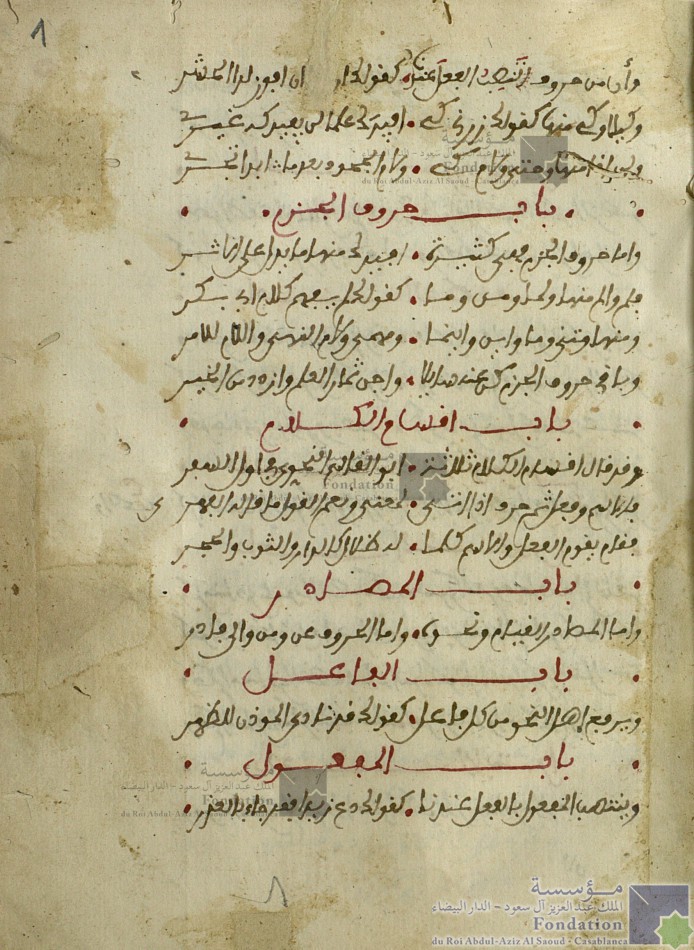 وأن من حروف تنصب الفعل عندنا • كقولك أن أفوز لدا الحشر
وكيلا وكي منها كقولك زرني كي • أفيدك علما لن يفيدكه غيري
منها وحتى ولام كي • ولام الجحود بعد ما
• باب حروف الجزم •
واما حروف الجزم فهي كثيرة • أفيدك منها ما يدل على
فلم والم منها ولما ومن وما • كقولك لم يفهم كلام أبي بكر
ومنها متى وما واين واينما • ومهمى ولام النهي واللام للامر
وباقي حروف الجزم • واجن ثمار العلم وازدد من الخير
• باب اقسام الكلام •
وقد قال اقسام الكلام ثلاثة • ابو القاسم النحوي في اول السفر
فاسم وفعل ثم حرف اذا اتى • لمعنى ونعم القول ما قاله
فقام يقوم الفعل والاسم كلما • لدار والثوب والحجر
• باب المصادر •
واما المصادر القيام ونحوه • واما الحروف عن ومن والى فادر
• باب الفاعل •
ويرفع اهل النحو من كل فاعل • كقولك قد نادى الموذن للظهر
• باب المفعول •
وينتصب المفعول بالفعل عندنا • كقولك دع زيدا فقد جاء بالعذر
مؤسسة
الملك عبد العزيز آل سعود - الدار البيضاء
Fondation
du Roi Abdul-Aziz Al Saoud - Casablanca